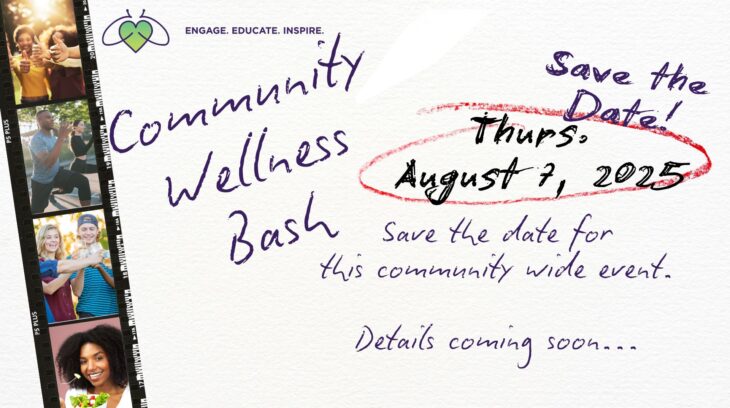 ENGAGE. EDUCATE. INSPIRE.
Community
Wellness
Bash
Save the
Date!
Thurs.
August 7, 2025
Save the date for
this community wide event.
Details coming soon...
PS PLUS
PS PLUS